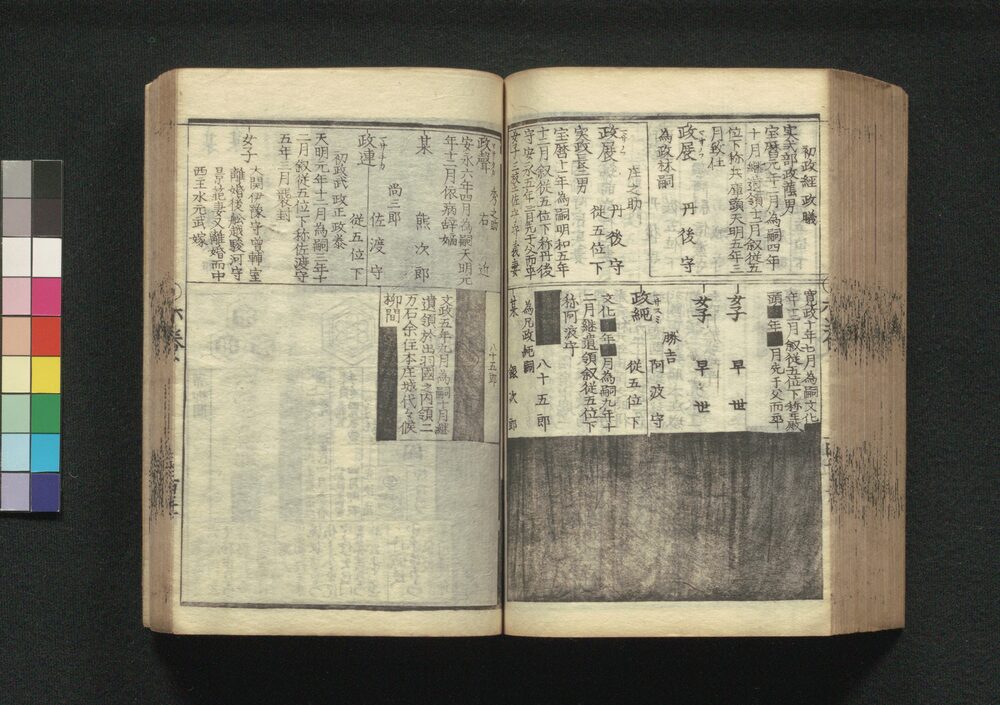 初政經 政職
実式部政蔭男
宝暦元年二月為嗣四年
十月継遺領十二月叙従五
位下称兵庫頭天明五年三
月致仕
政展 丹後守
為政秌嗣
庄之助
政展 丹後守
従五位下
実政長三男
宝暦十一年為嗣明和五年
十二月叙従五位下称丹後
守安永五年二月先于父而卒
政聲 秀之助
右近
安永六年四月為嗣天明元
年十二月依病辞嫡
某 熊次郎
尚三郎
政連 佐渡守
従五位下
初政武 政正 政泰
天明元年十二月為嗣三年十
二月叙従五位下称佐渡守
五年三月襲封
女子
大関伊豫守増輝室
離婚後舩越駿河守
景範妻又離婚而中
西主水元武嫁
寛政十年七月為嗣文化
年十二月叙従五位下称兵庫
頭 年 月先于父而卒
女子 早世
女子 早世
勝吉
政純 阿波守
従五位下
文化 年 月為嗣九年十
二月継遺領叙従五位下
称阿波守
八十五郎
為兄政純嗣
某 銀次郎
八十五郎
文政五年九月為嗣十月継
遺領於出羽國之内領二
万石余住本庄城代々候
柳間